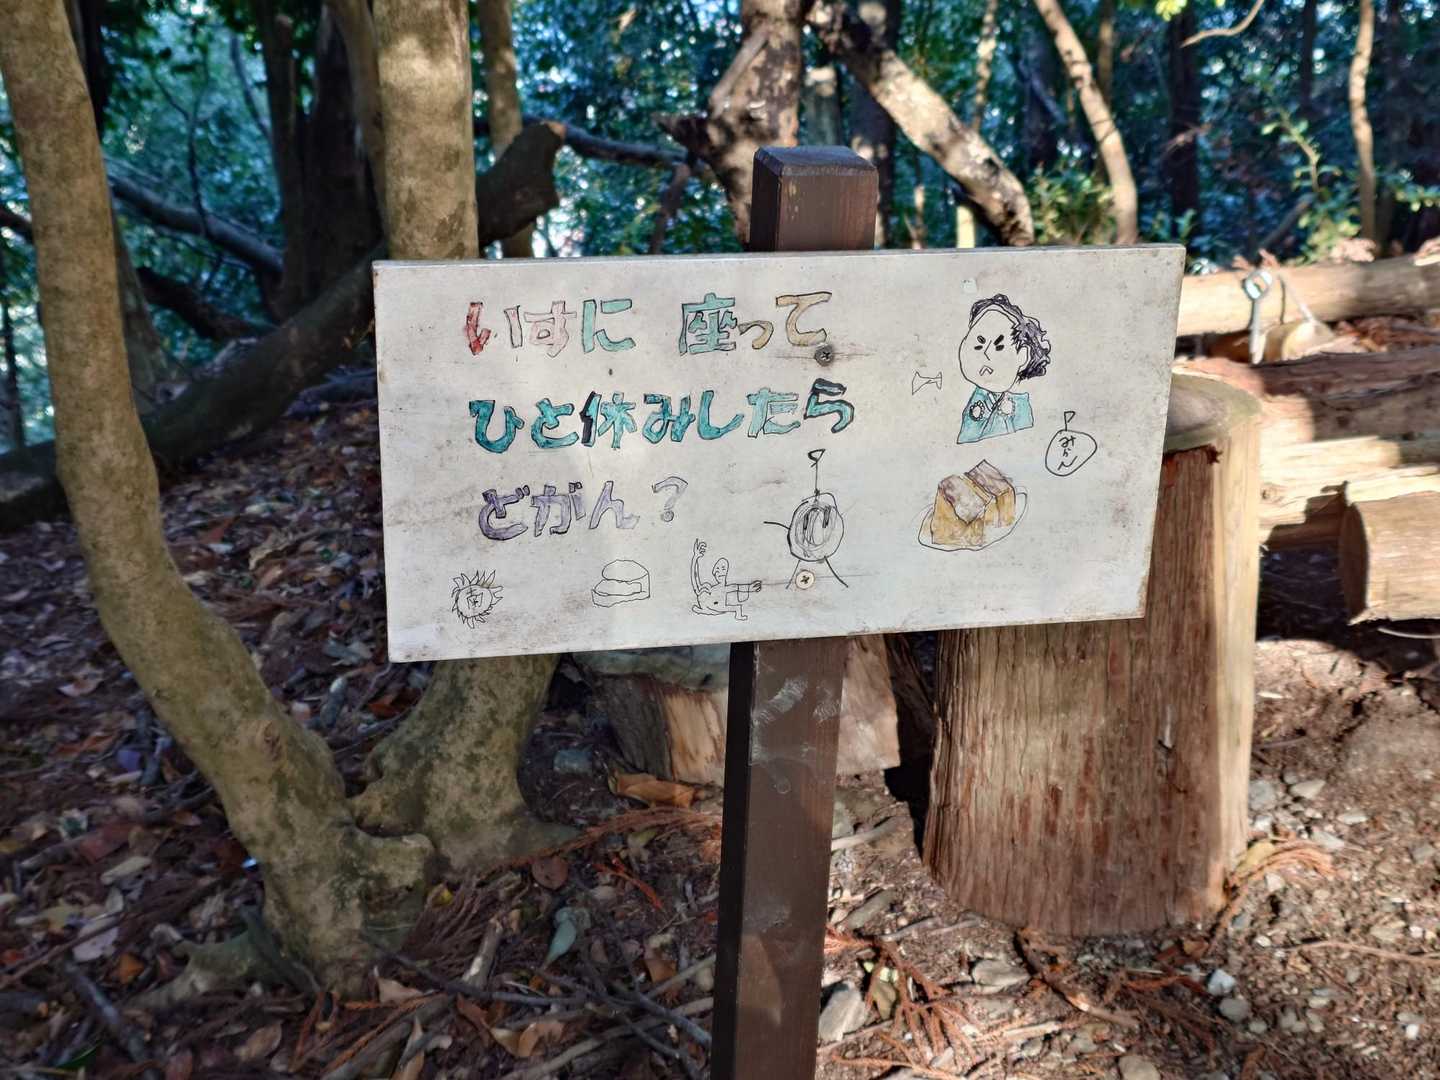 いすに 座って
ひと休みしたら
どがん?
みかん